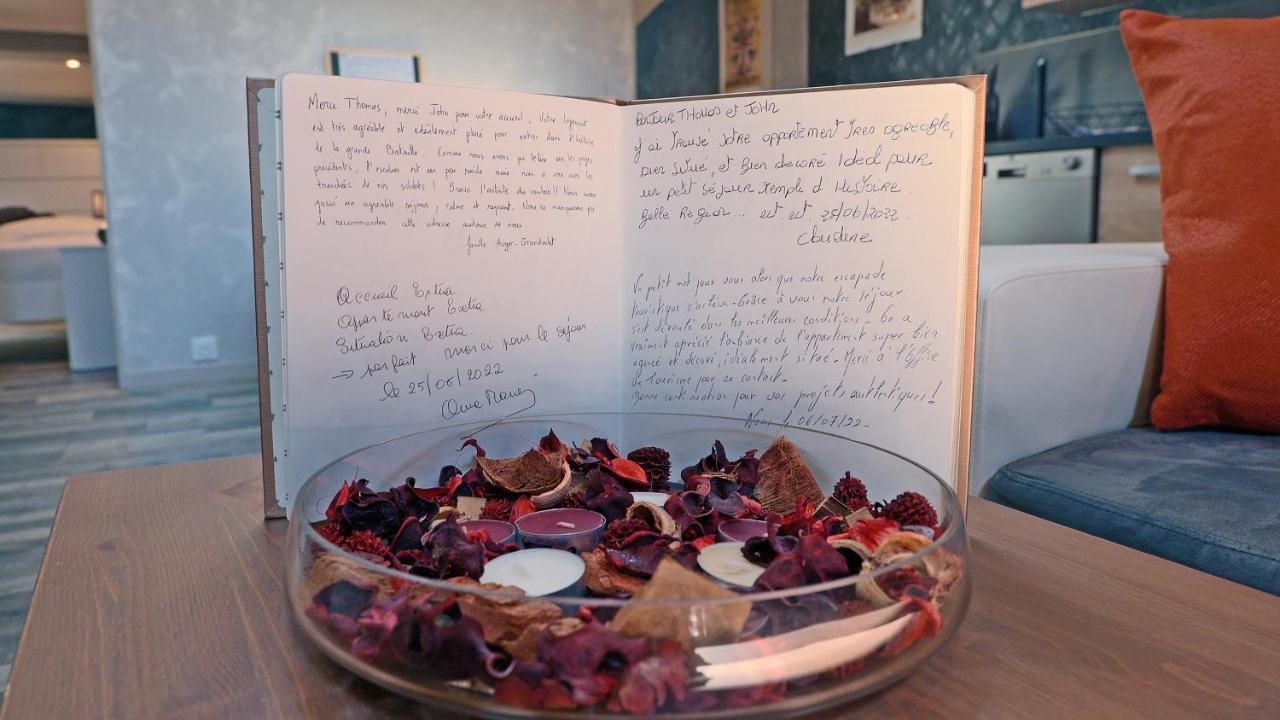 Merci Thomas, merci John pour votre accueil. Votre logement
est très agréable et idéalement placé pour entrer dans l'histoire
de la grande Bataille. Comme nous avons pu le lire sur les pages
précédentes, l'escalier est un peu raide mais rien à voir avec les
tranchées de nos soldats ! Bravo l'artiste du couloir!! Nous avons
passé un agréable séjour, calme et reposant. Nous ne manquerons pas
de recommander cette adresse autour de nous.
famille Auger-
Accueil Extra
Appartement Extra
Situation Extra.
→ parfait merci pour le séjour
le 25/06/2022
BONJOUR THOMAS ET JOHN
J'ai trouvé votre appartement très agréable,
bien situé, et bien décoré. Idéal pour
un petit séjour rempli d'Histoire.
Belle Region... est est. 25/06/2022.
Claudine
Un petit mot pour vous alors que notre escapade
touristique s'achève. Grâce à vous notre séjour
s'est déroulé dans les meilleures conditions. On a
vraiment apprécié l'ambiance de l'appartement super bien
agencé et décoré, idéalement situé. Merci à l'Office
de Tourisme pour ce contact.
Bonne continuation pour vos projets authentiques !
le 06/07/22.